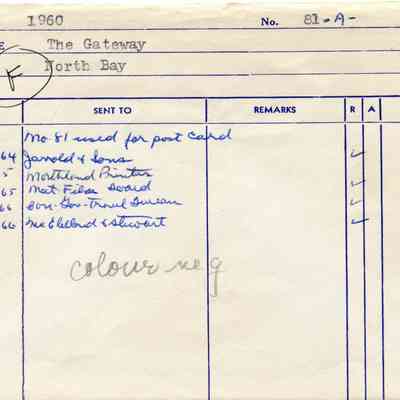 1960 No. 81-A-
E The Gateway
F North Bay
SENT TO REMARKS R A
No 81 used for post card
64 Jarrold & Sons
5 Northland Printer
65 Nat. Film Board
66 Gov. Travel Bureau
66 McClelland & Stewart
colour neg